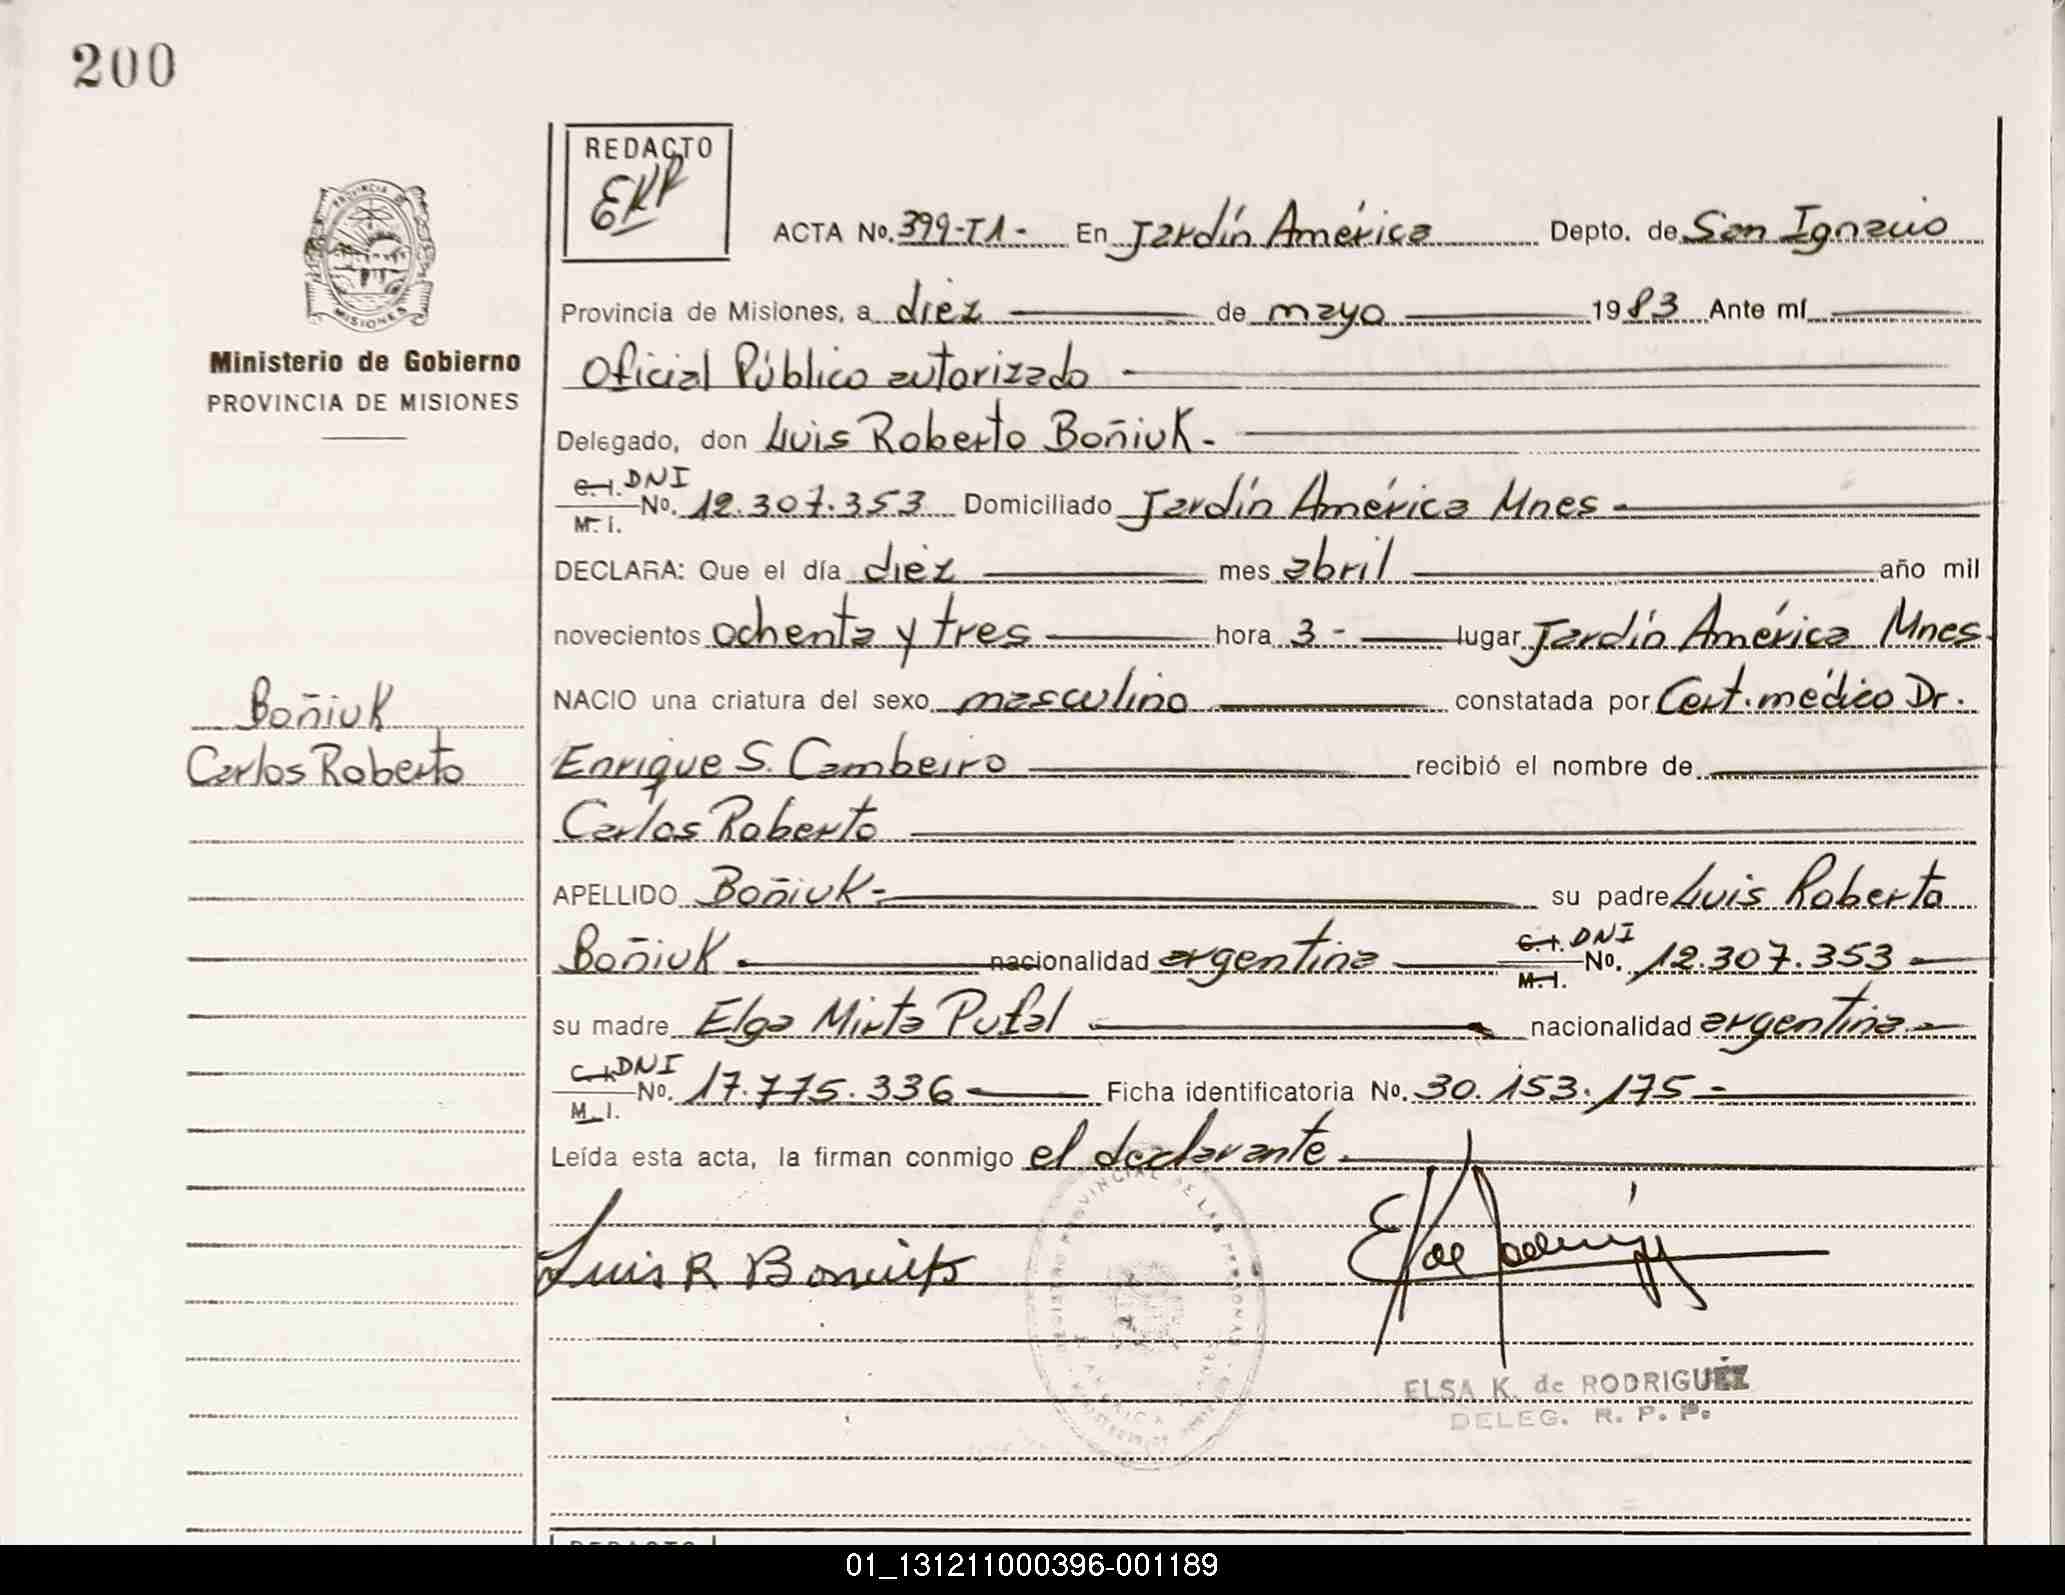 200
REDACTO
EKR
ACTA No. 399-T1- En Jardín América Depto. de San Ignacio
PROVINCIA DE
MISIONES
Provincia de Misiones, a diez de mayo 1983 Ante mí
Ministerio de Gobierno
PROVINCIA DE MISIONES
Oficial Público autorizado
Delegado, don Luis Roberto Boñiuk.
C.I. DNI
M.I. No. 12.307.353 Domiciliado Jardín América Mnes
DECLARA: Que el día diez mes abril año mil
novecientos ochenta y tres hora 3 - lugar Jardín América Mnes.
Boñiuk
Carlos Roberto
NACIO una criatura del sexo masculino constatada por Cert. médico Dr.
Enrique S. Cambeiro recibió el nombre de
Carlos Roberto
APELLIDO Boñiuk su padre Luis Roberto
Boñiuk nacionalidad argentina C.I. DNI M.I. No. 12.307.353
su madre Elga Mirta Pufal nacionalidad argentina
C.I. DNI
M.I. No. 17.775.336 Ficha identificatoria No. 30.153.175
Leída esta acta, la firman conmigo el declarante.
REGISTRO PROVINCIAL DE LAS PERSONAS
Luis R Boniuk
ELSA K. de RODRIGUEZ
DELEG. R. P. P.
REDACTO
01_131211000396-001189